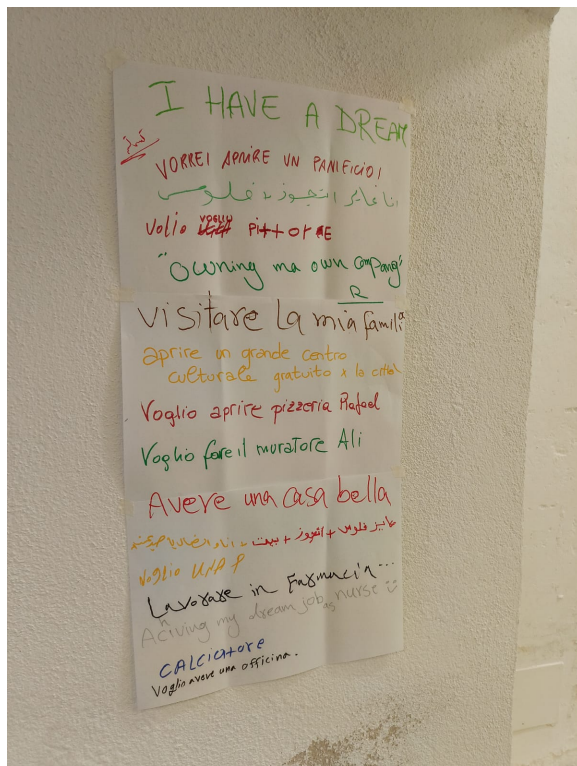 I HAVE A DREAM
VORREI APRIRE UN PANIFICIO!
انا عايز اتجوز + فلوس
Volio VOGLIO PittorE
"Owning ma own company"
R
visitare La mia famiglia
aprire un grande centro
culturale gratuito x la città
Voglio aprire pizzeria Rafael
Voglio fare il muratore Ali
Avere una casa bella
عايز فلوس + اتجوز + بيت
voglio UNA
Lavorare in Farmacia...
Achiving my dream job as nurse
CALCIatore
Voglio avere una officina.